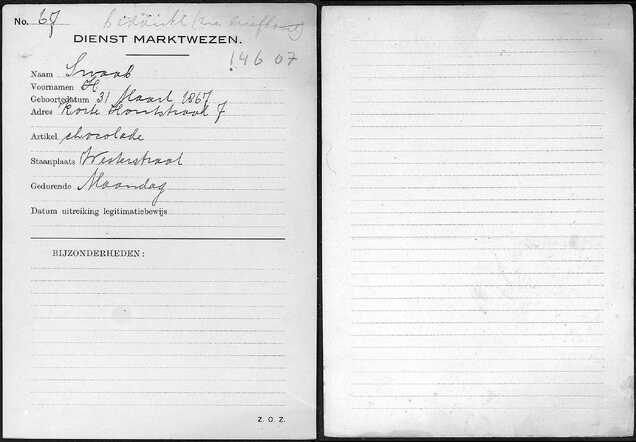 No. 67
DIENST MARKTWEZEN.
14607
Naam Swaab
Voornamen H
Geboortedatum 31 Maart 1867
Adres Korte Houtstraat 7
Artikel chocolade
Staanplaats Westerstraat
Gedurende Maandag
Datum uitreiking legitimatiebewijs
BIJZONDERHEDEN:
Z. O. Z.